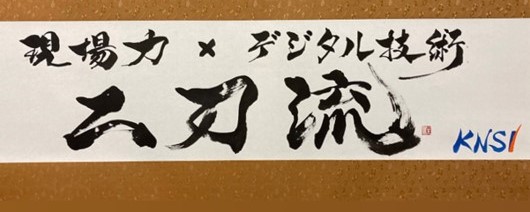 現場力 × デジタル技術
二刃流
KNSI